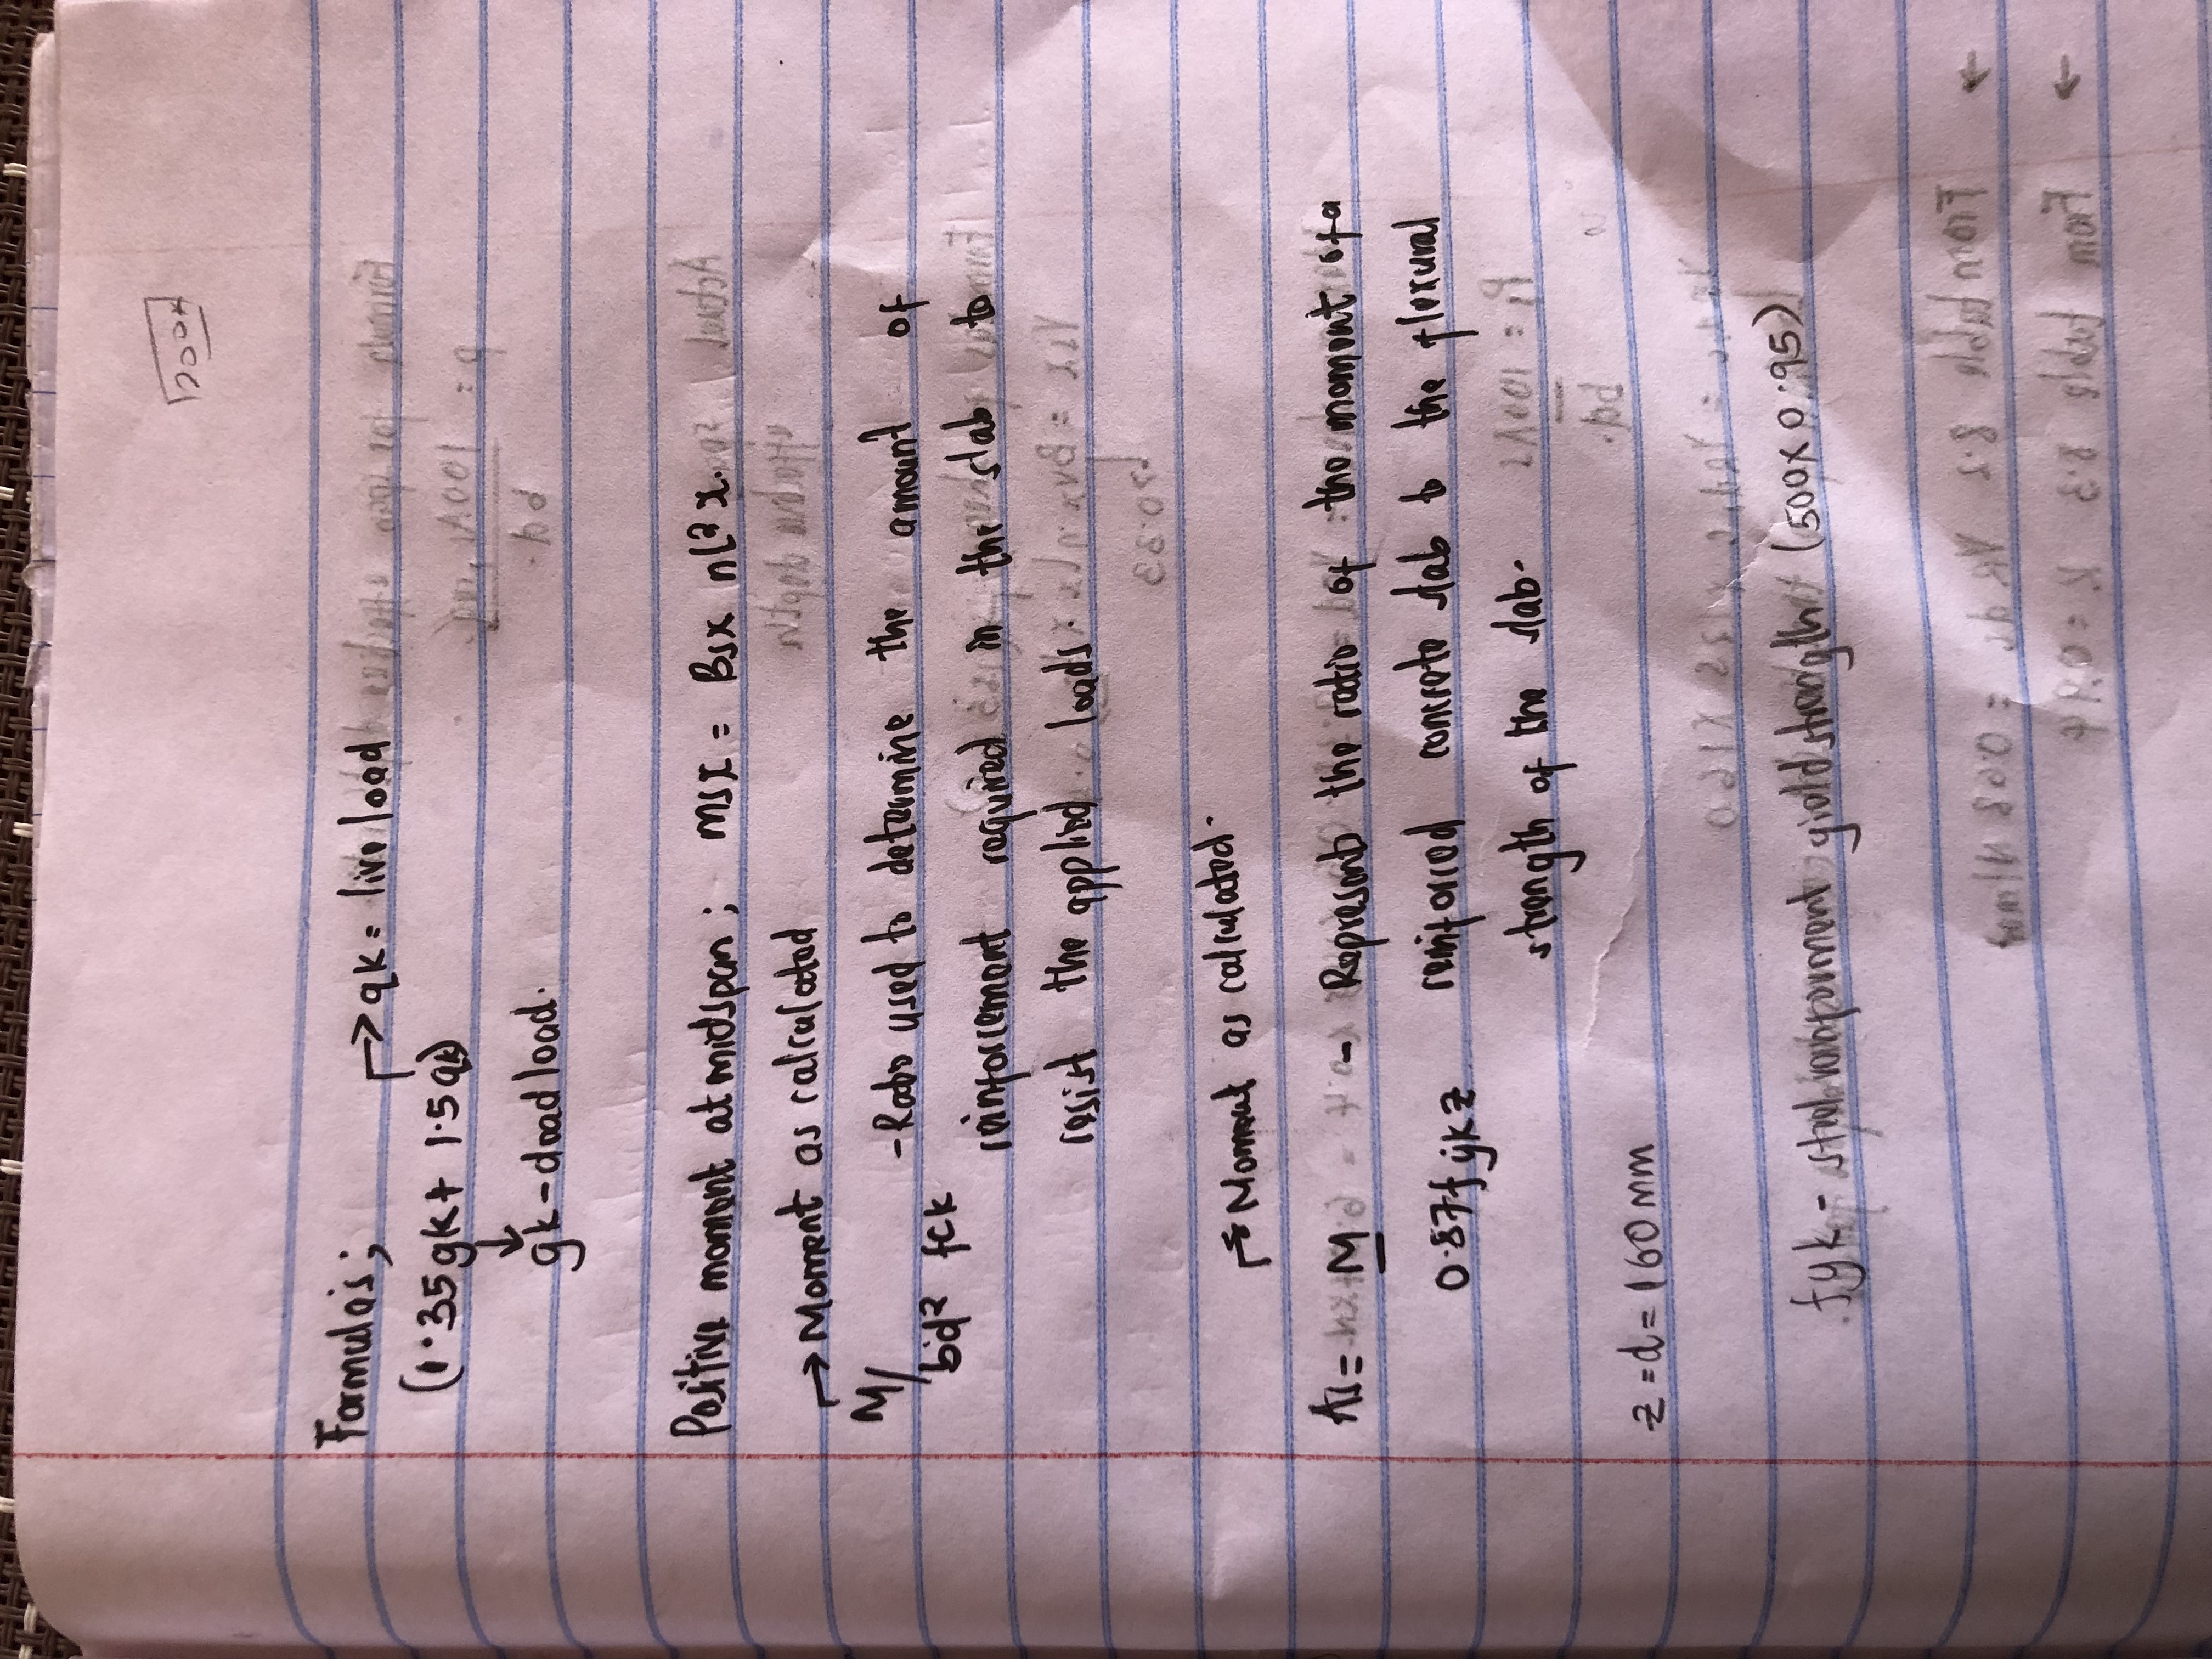 200*
Formula's;
→ qk = live load
(1.35gk + 1.5qk)
↓
gk - dead load.
Positive moment at midspan; msx = Bsx nl²x.
→ Moment as calculated
M/bd² fck - Ratio used to determine the amount of
reinforcement required in the slab to
resist the applied loads.
→ Moment as calculated.
As = M - Represents the ratio of the moment of a
0.87fykz reinforced concrete slab to the flexural
strength of the slab.
z = d = 160mm
fyk - steel reinforment yield strength (500x0.95)